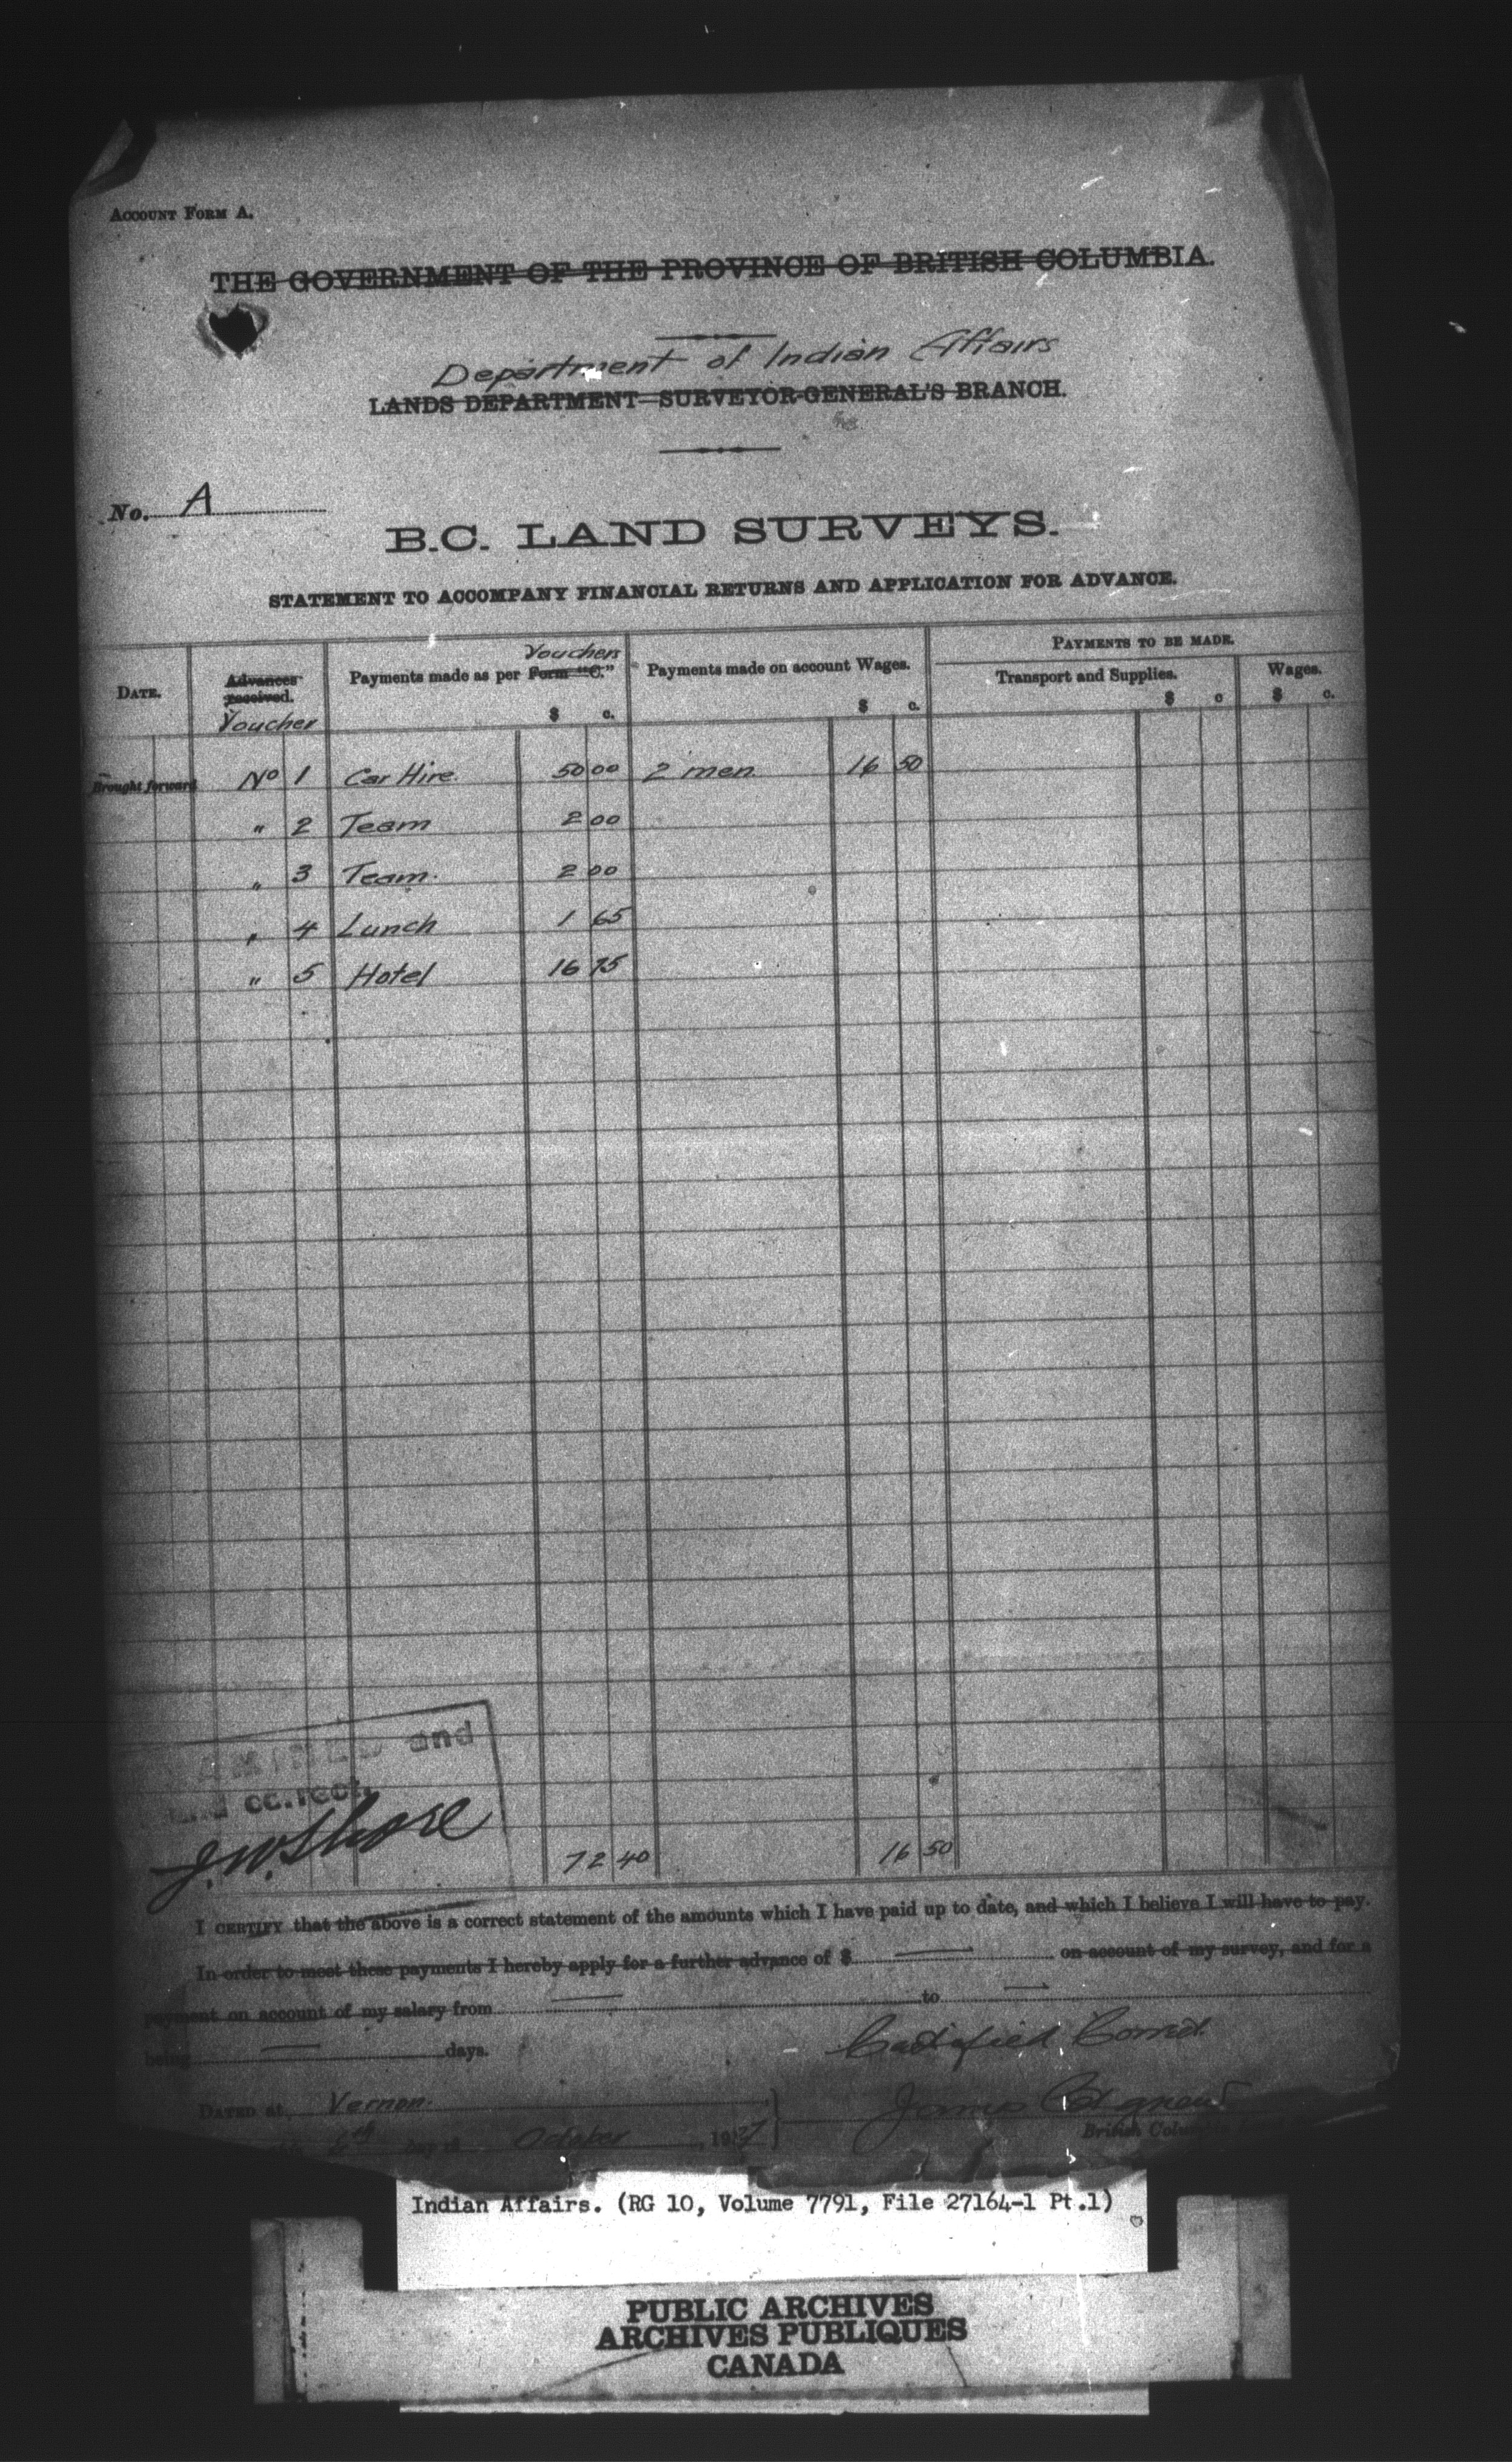 ACCOUNT FORM A.
THE GOVERNMENT OF THE PROVINCE OF BRITISH COLUMBIA.
Department of Indian Affairs
LANDS DEPARTMENT—SURVEYOR-GENERAL'S BRANCH.
No. A
B.C. LAND SURVEYS.
STATEMENT TO ACCOMPANY FINANCIAL RETURNS AND APPLICATION FOR ADVANCE.
DATE. Advances received. Voucher Payments made as per Form "C." Vouchers $ c. Payments made on account Wages. $ c. PAYMENTS TO BE MADE. Transport and Supplies. $ c Wages. $ c.
Brought forward No 1 Car Hire. 50 00 2 men. 16 50
" 2 Team 2 00
" 3 Team. 2 00
" 4 Lunch 1 65
" 5 Hotel 16 75
and
correct.
J.W. Shore
72 40 16 50
I CERTIFY that the above is a correct statement of the amounts which I have paid up to date, and which I believe I will have to pay.
In order to meet these payments I hereby apply for a further advance of $ — on account of my survey, and for a
payment on account of my salary from — to —
being — days.
Certified Correct.
DATED at Vernon.
James Agnew
6th day of October, 19
British Columbia
Indian Affairs. (RG 10, Volume 7791, File 27164-1 Pt.1)
PUBLIC ARCHIVES
ARCHIVES PUBLIQUES
CANADA